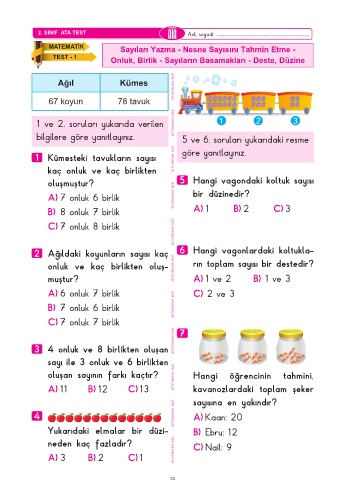 2. SINIF ATA TEST
Adı, soyadı:
MATEMATİK
TEST - 1
Sayıları Yazma - Nesne Sayısını Tahmin Etme -
Onluk, Birlik - Sayıların Basamakları - Deste, Düzine
Ağıl Kümes
67 koyun 78 tavuk
1 ve 2. soruları yukarıda verilen
bilgilere göre yanıtlayınız.
1 Kümesteki tavukların sayısı
kaç onluk ve kaç birlikten
oluşmuştur?
A) 7 onluk 6 birlik
B) 8 onluk 7 birlik
C) 7 onluk 8 birlik
2 Ağıldaki koyunların sayısı kaç
onluk ve kaç birlikten oluş-
muştur?
A) 6 onluk 7 birlik
B) 7 onluk 6 birlik
C) 7 onluk 7 birlik
3 4 onluk ve 8 birlikten oluşan
sayı ile 3 onluk ve 6 birlikten
oluşan sayının farkı kaçtır?
A) 11 B) 12 C) 13
4
Yukarıdaki elmalar bir düzi-
neden kaç fazladır?
A) 3 B) 2 C) 1
1 2 3
5 ve 6. soruları yukarıdaki resme
göre yanıtlayınız.
5 Hangi vagondaki koltuk sayısı
bir düzinedir?
A) 1 B) 2 C) 3
6 Hangi vagonlardaki koltukla-
rın toplam sayısı bir destedir?
A) 1 ve 2 B) 1 ve 3
C) 2 ve 3
7
Hangi öğrencinin tahmini,
kavanozlardaki toplam şeker
sayısına en yakındır?
A) Kaan: 20
B) Ebru: 12
C) Nail: 9